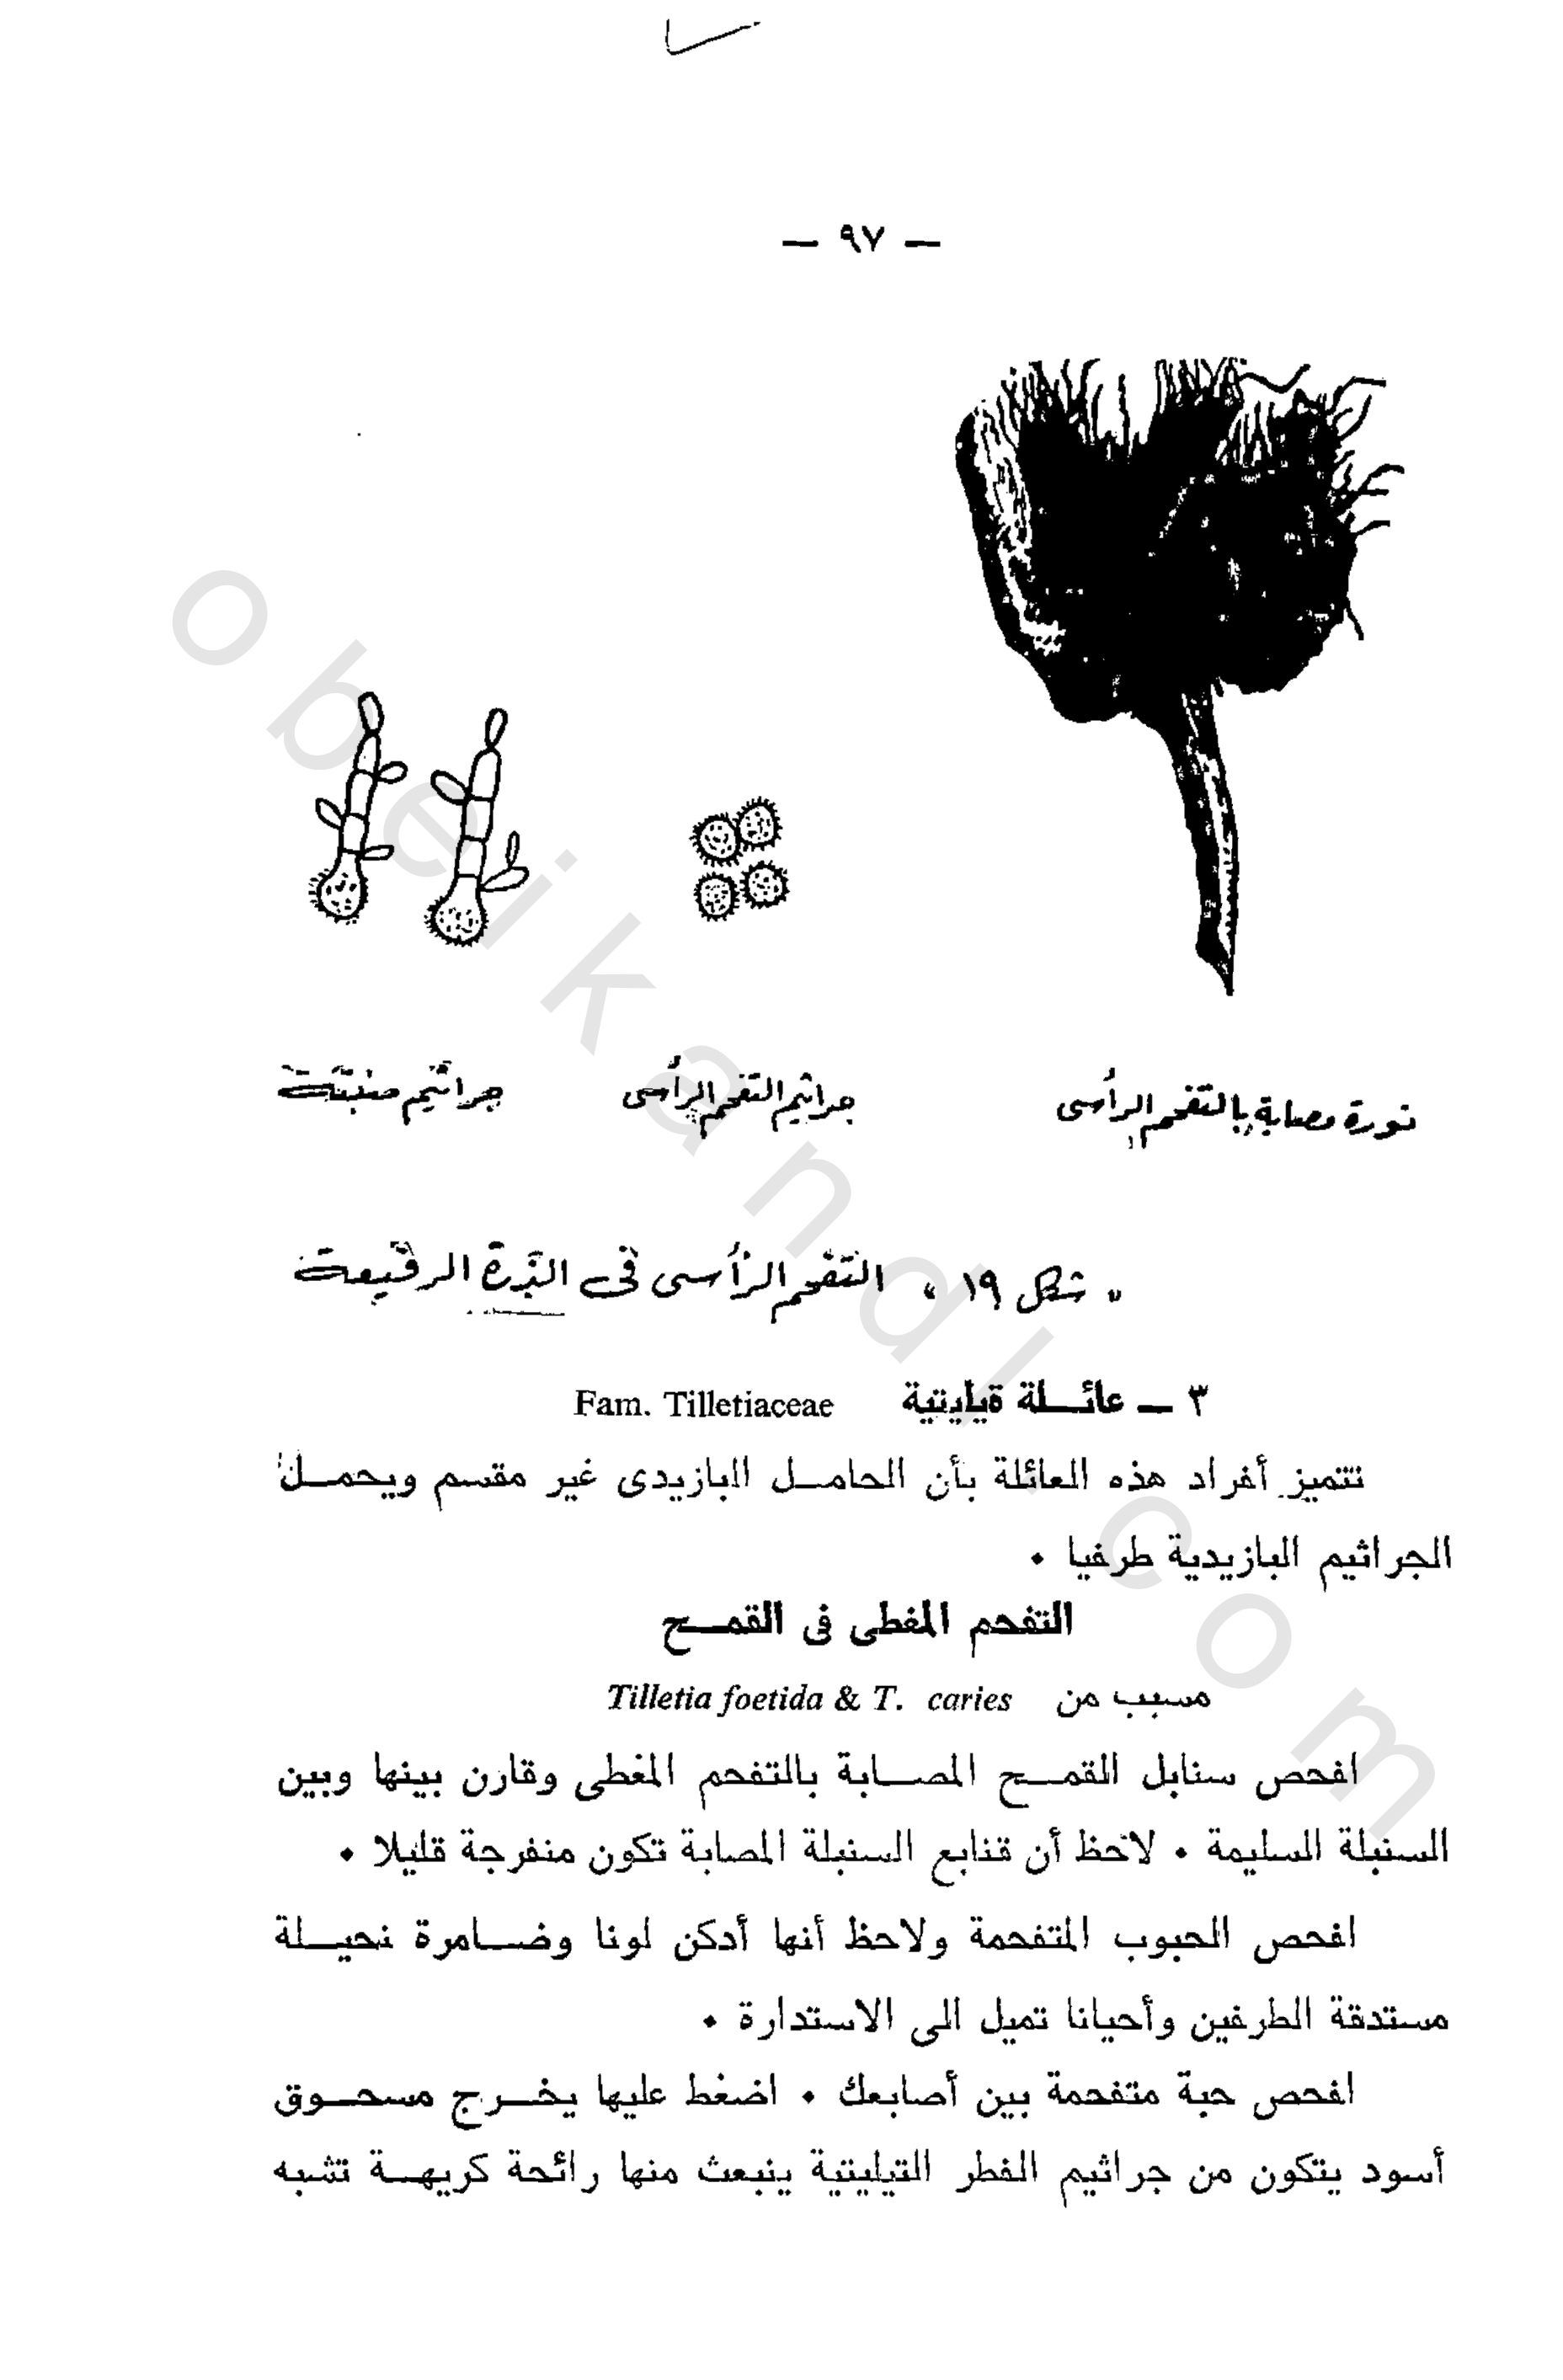 — ٩٧ —
نورة مصابة بالتفحم الرأسى
جراثيم التفحم الرأسى
جراثيم منبتة
« شكل ١٩ » التفحم الرأسى فى الذرة الرفيعة
٣ — عائلة تيليتية Fam. Tilletiaceae
تتميز أفراد هذه العائلة بأن الحامل البازيدى غير مقسم ويحمل
الجراثيم البازيدية طرفيا .
التفحم المغطى فى القمح
مسبب من Tilletia foetida & T. caries
افحص سنابل القمح المصابة بالتفحم المغطى وقارن بينها وبين
السنبلة السليمة . لاحظ أن قنابع السنبلة المصابة تكون منفرجة قليلا .
افحص الحبوب المتفحمة ولاحظ أنها أدكن لونا وضامرة نحيلة
مستدقة الطرفين وأحيانا تميل الى الاستدارة .
افحص حبة متفحمة بين أصابعك . اضغط عليها يخرج مسحوق
أسود يتكون من جراثيم الفطر التيليتية ينبعث منها رائحة كريهة تشبه
obeikandl.com